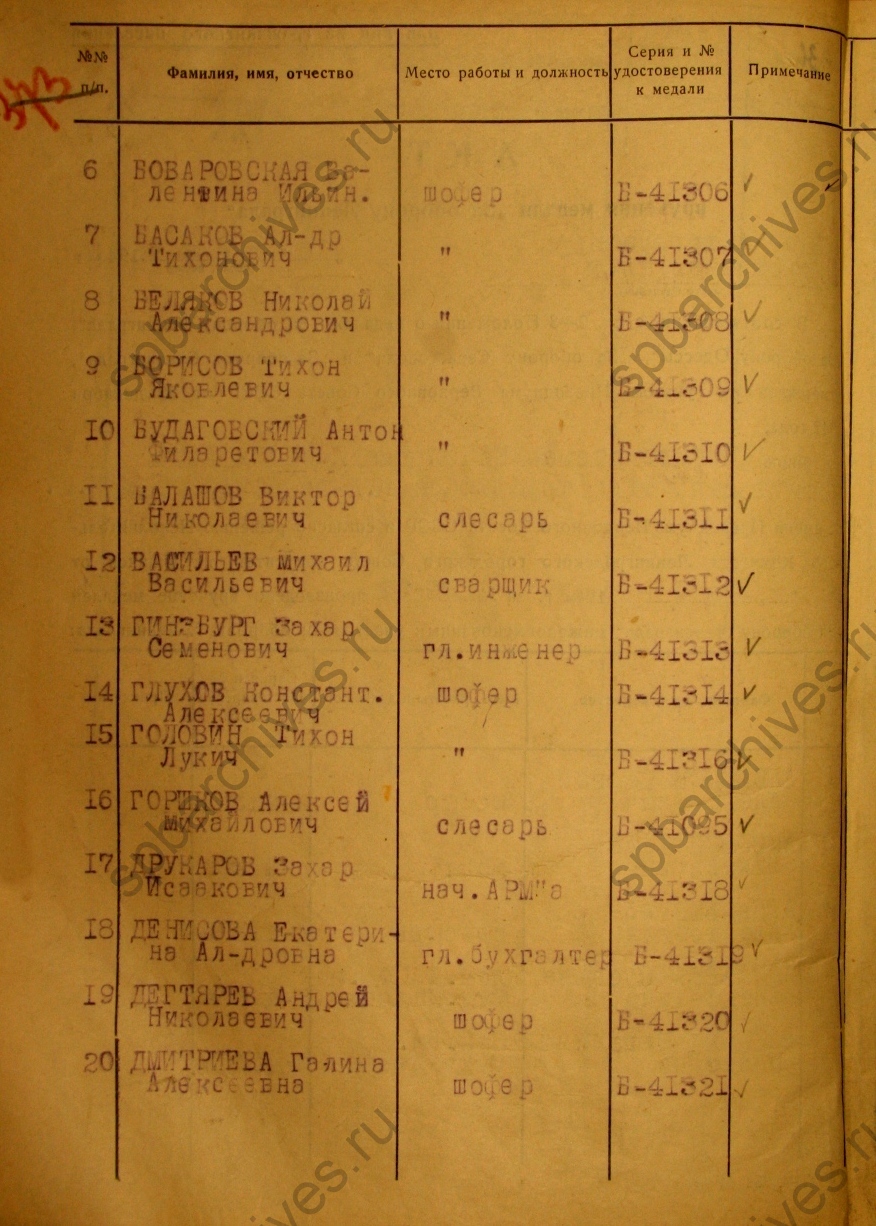 №№ п/п. Фамилия, имя, отчество Место работы и должность Серия и № удостоверения к медали Примечание
6 БОБАРОВСКАЯ Ва-
лентина Ильин. шофер Б-41306
7 БАСАКОВ Ал-др
Тихонович " Б-41307
8 БЕЛЯКОВ Николай
Александрович " Б-41308
9 БОРИСОВ Тихон
Яковлевич " Б-41309
10 БУДАГОВСКИЙ Антон
Филаретович " Б-41310
11 БАЛАШОВ Виктор
Николаевич слесарь Б-41311
12 ВАСИЛЬЕВ Михаил
Васильевич сварщик Б-41312
13 ГИНЗБУРГ Захар
Семенович гл.инженер Б-41313
14 ГЛУХОВ Констант. шофер Б-41314
Алексеевич
15 ГОЛОВИН Тихон
Лукич " Б-41316
16 Алексей
Михайлович слесарь Б-41095
17 ДРУКАРОВ Захар
Исаакович нач. Б-41318
18 ДЕНИСОВА Екатери-
на Ал-дровна гл.бухгалтер Б-41319
19 ДЕГТЯРЕВ Андрей
Николаевич шофер Б-41320
20 ДМИТРИЕВА Галина
Алексеевна шофер Б-41321
spbarchives.ru
spbarchives.ru
spbarchives.ru
spbarchives.ru